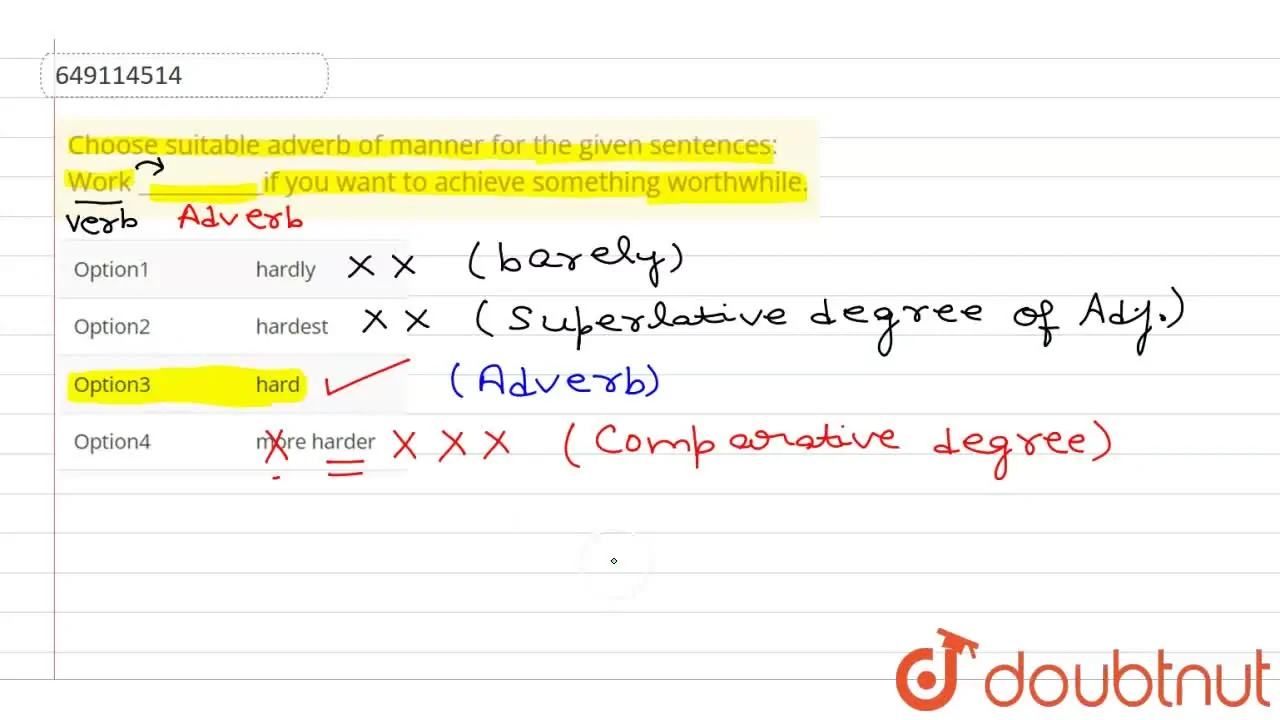 649114514
Choose suitable adverb of manner for the given sentences:
Work __________ if you want to achieve something worthwhile.
verb Adverb
Option1 hardly X X (barely)
Option2 hardest X X (Superlative degree of Adj.)
Option3 hard ✓ (Adverb)
Option4 more harder X X X (Comparative degree)
doubtnut